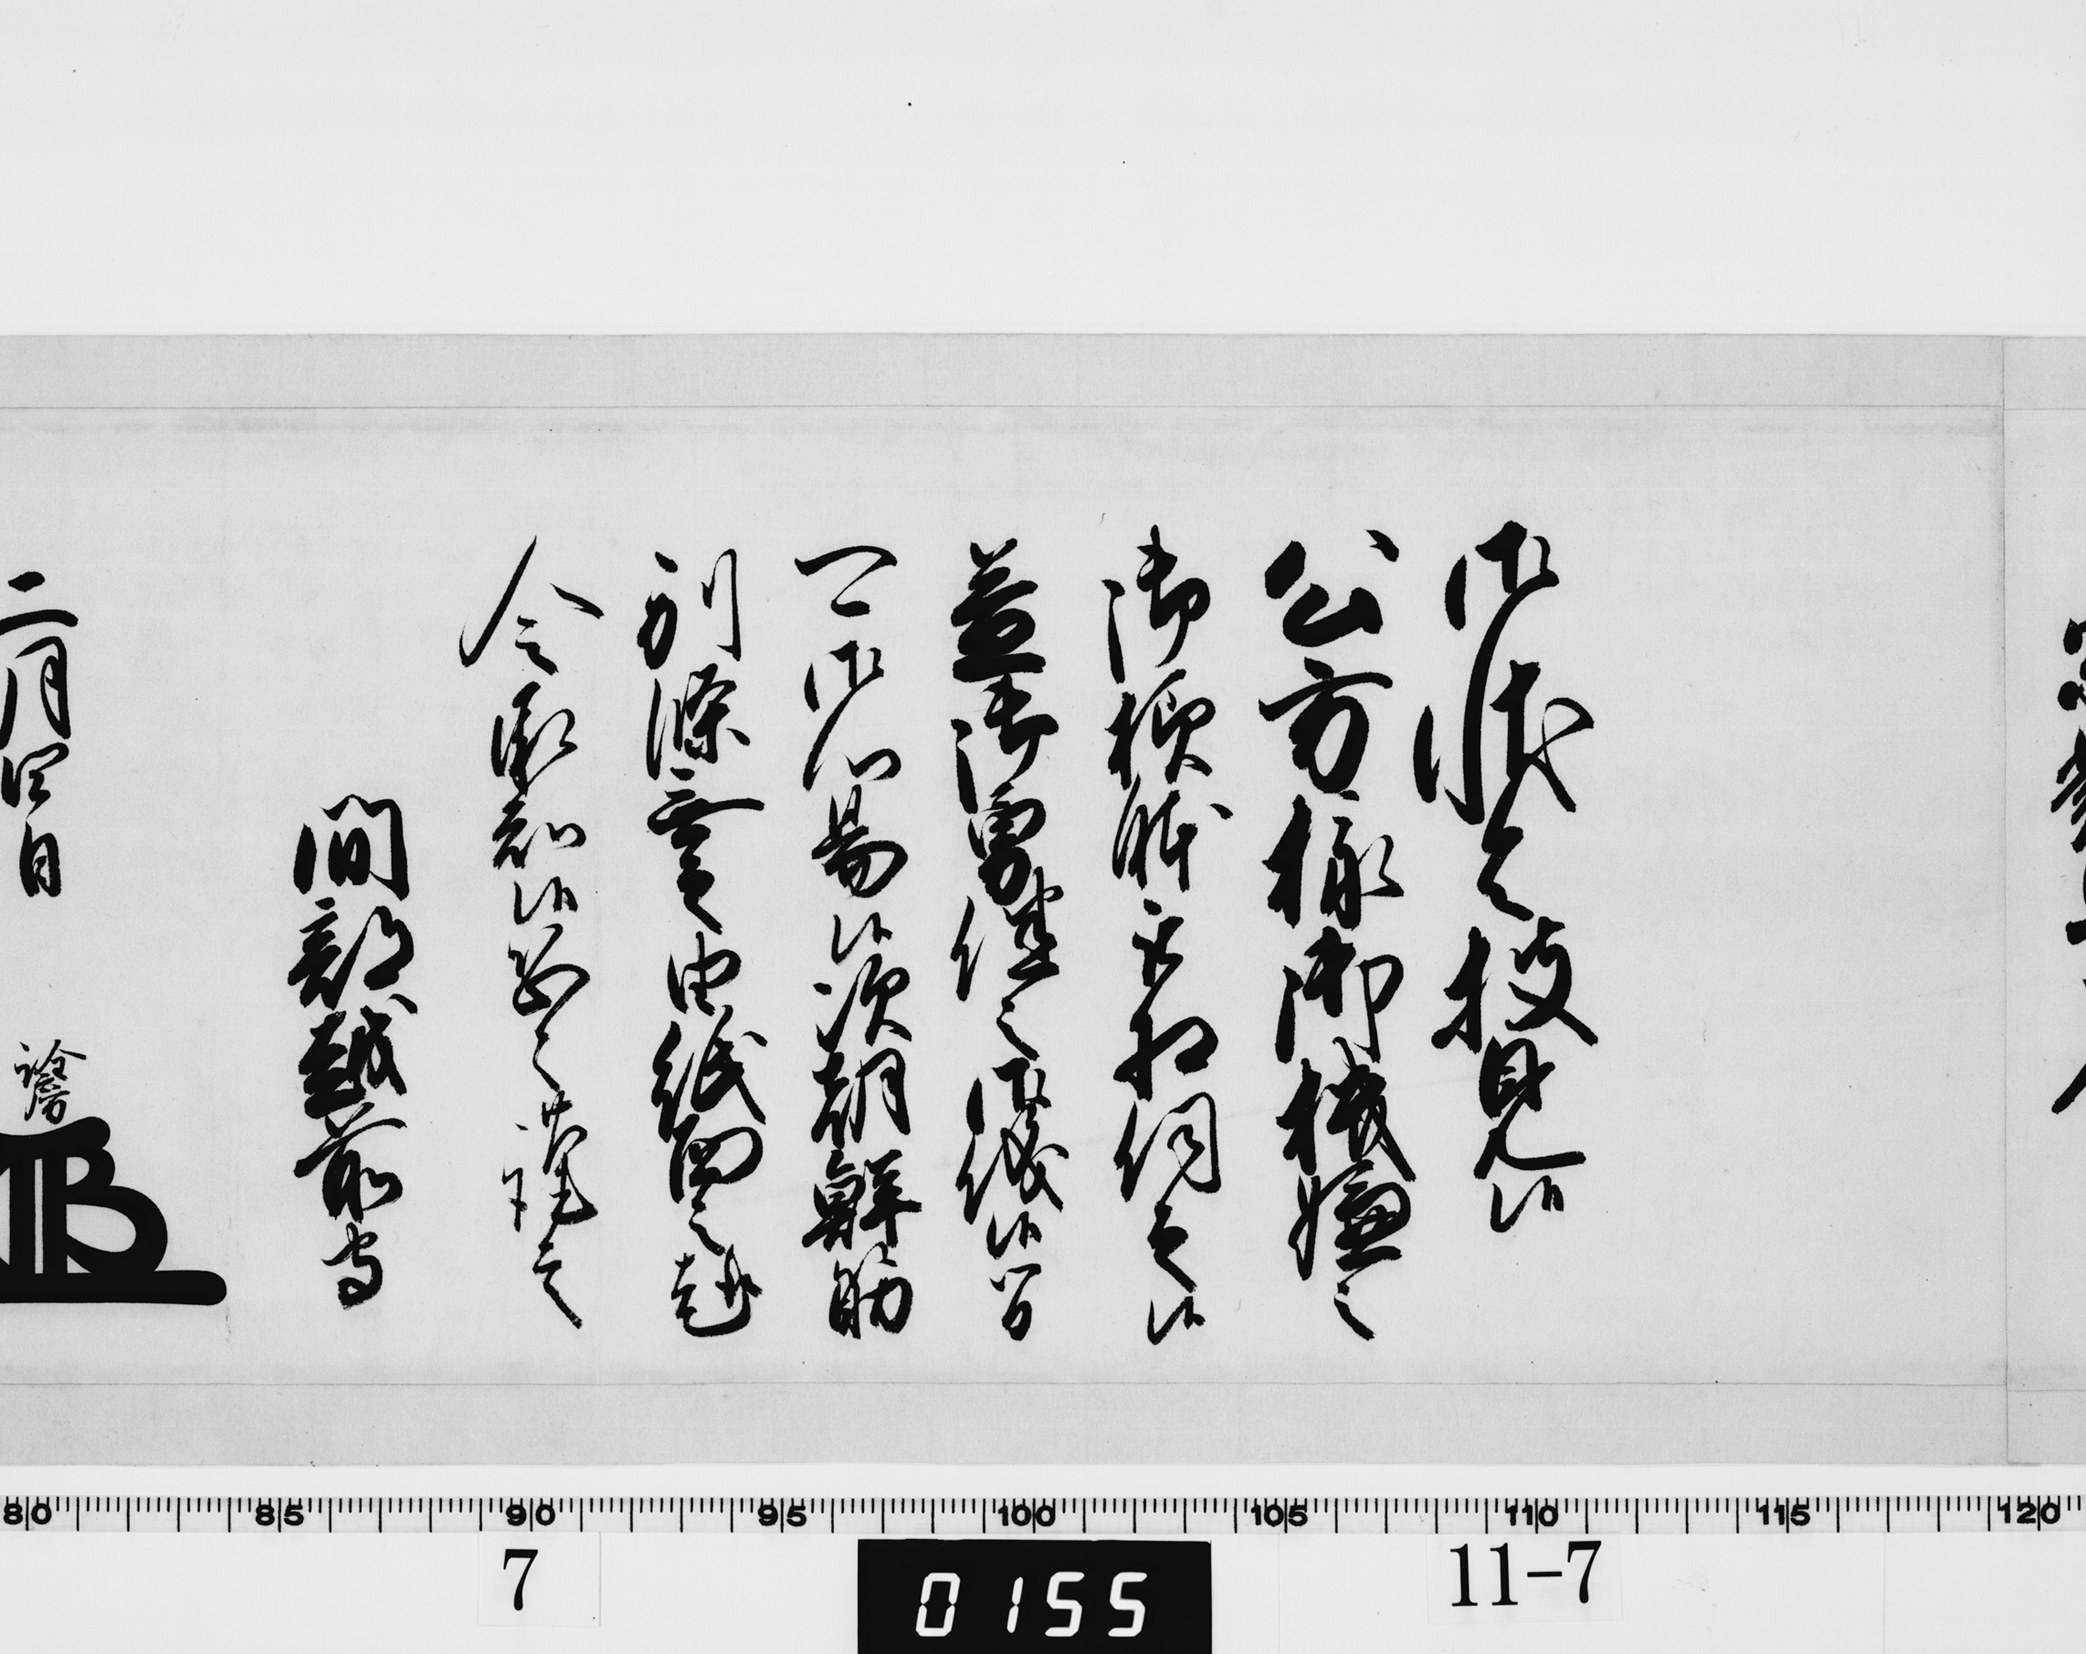 御状令披見候
公方様御機嫌之
御様躰被相伺之候
益御勇健之御儀候間
可御心易候次朝鮮筋
別條無之由紙面之趣
令承知候恐々謹言
間部越前守
二月四日 詮房
80 85 90 95 100 105 110 115 120
7 0155 11-7